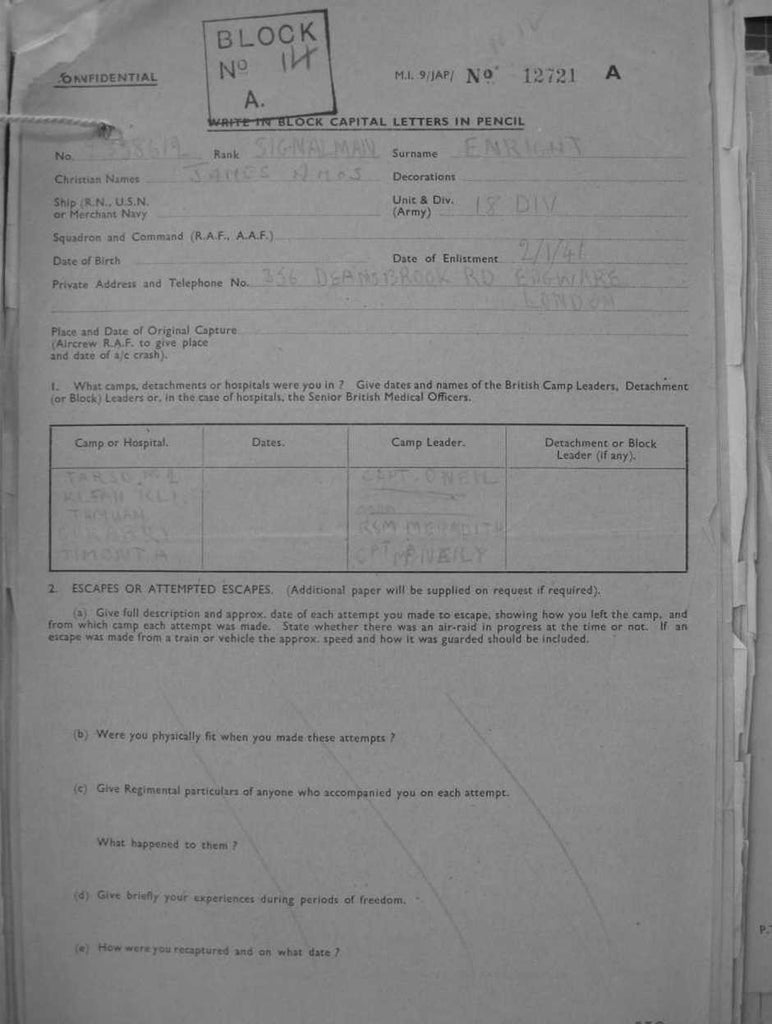 BLOCK
No 14
A.
CONFIDENTIAL
M.I. 9/JAP/ No 12721 A
WRITE IN BLOCK CAPITAL LETTERS IN PENCIL
No. Rank SIGNALMAN Surname ENRIGHT
Christian Names JAMES AMOS Decorations
Ship (R.N., U.S.N. or Merchant Navy
Unit & Div. (Army) 18 DIV
Squadron and Command (R.A.F., A.A.F.)
Date of Birth Date of Enlistment 2/1/41
Private Address and Telephone No. 356 DEANSBROOK RD EDGWARE
LONDON
Place and Date of Original Capture
(Aircrew R.A.F. to give place
and date of a/c crash).
1. What camps, detachments or hospitals were you in ? Give dates and names of the British Camp Leaders, Detachment
(or Block) Leaders or, in the case of hospitals, the Senior British Medical Officers.
Camp or Hospital. Dates. Camp Leader. Detachment or Block
Leader (if any).
CAPT. ONEIL
TAMUAN
RSM
2. ESCAPES OR ATTEMPTED ESCAPES. (Additional paper will be supplied on request if required).
(a) Give full description and approx. date of each attempt you made to escape, showing how you left the camp, and
from which camp each attempt was made. State whether there was an air-raid in progress at the time or not. If an
escape was made from a train or vehicle the approx. speed and how it was guarded should be included.
(b) Were you physically fit when you made these attempts ?
(c) Give Regimental particulars of anyone who accompanied you on each attempt.
What happened to them ?
(d) Give briefly your experiences during periods of freedom.
(e) How were you recaptured and on what date ?